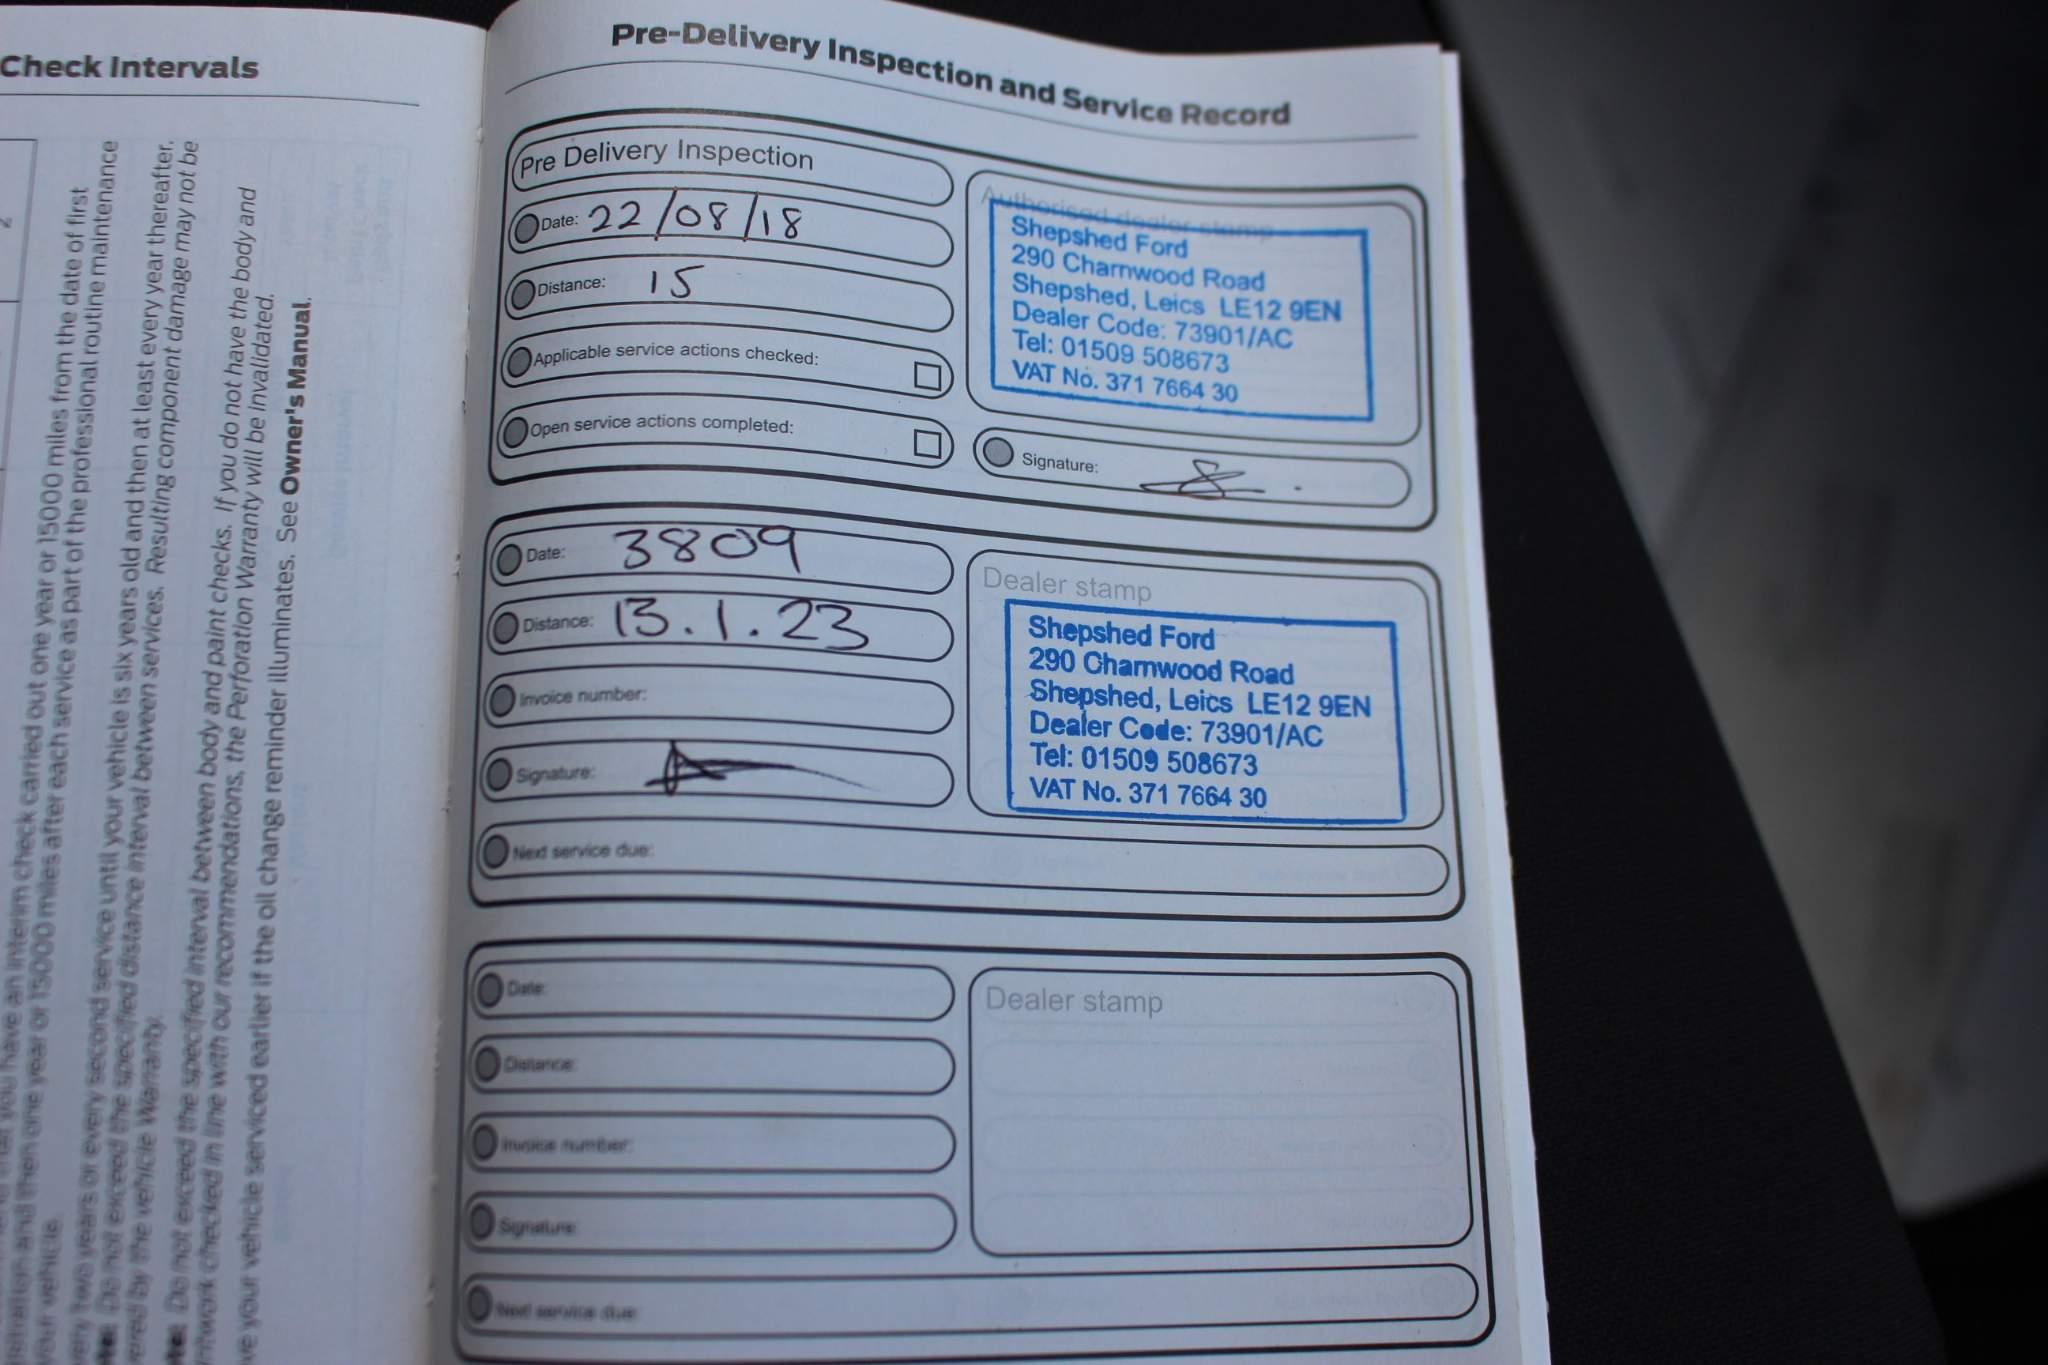 Check Intervals
2
have an interim check carried out one year or 15000 miles from the date of first
and then one year or 15000 miles after each service as part of the professional routine maintenance
your vehicle.
Two years or every second service until your vehicle is six years old and then at least every year thereafter.
Do not exceed the specified distance interval between services. Resulting component damage may not be
by the vehicle Warranty.
Do not exceed the specified interval between body and paint checks. If you do not have the body and
checked in line with our recommendations, the Perforation Warranty will be invalidated.
your vehicle serviced earlier if the oil change reminder illuminates. See Owner's Manual.
Pre-Delivery Inspection and Service Record
Pre Delivery Inspection
Date: 22/08/18
Distance: 15
Applicable service actions checked:
Open service actions completed:
Authorised dealer stamp
Shepshed Ford
290 Charnwood Road
Shepshed, Leics LE12 9EN
Dealer Code: 73901/AC
Tel: 01509 508673
VAT No. 371 7664 30
Signature:
Date: 3809
Distance: 13.1.23
Invoice number:
Signature:
Next service due:
Dealer stamp
Shepshed Ford
290 Charnwood Road
Shepshed, Leics LE12 9EN
Dealer Code: 73901/AC
Tel: 01509 508673
VAT No. 371 7664 30
Date:
Distance:
Invoice number:
Signature:
Next service due:
Dealer stamp